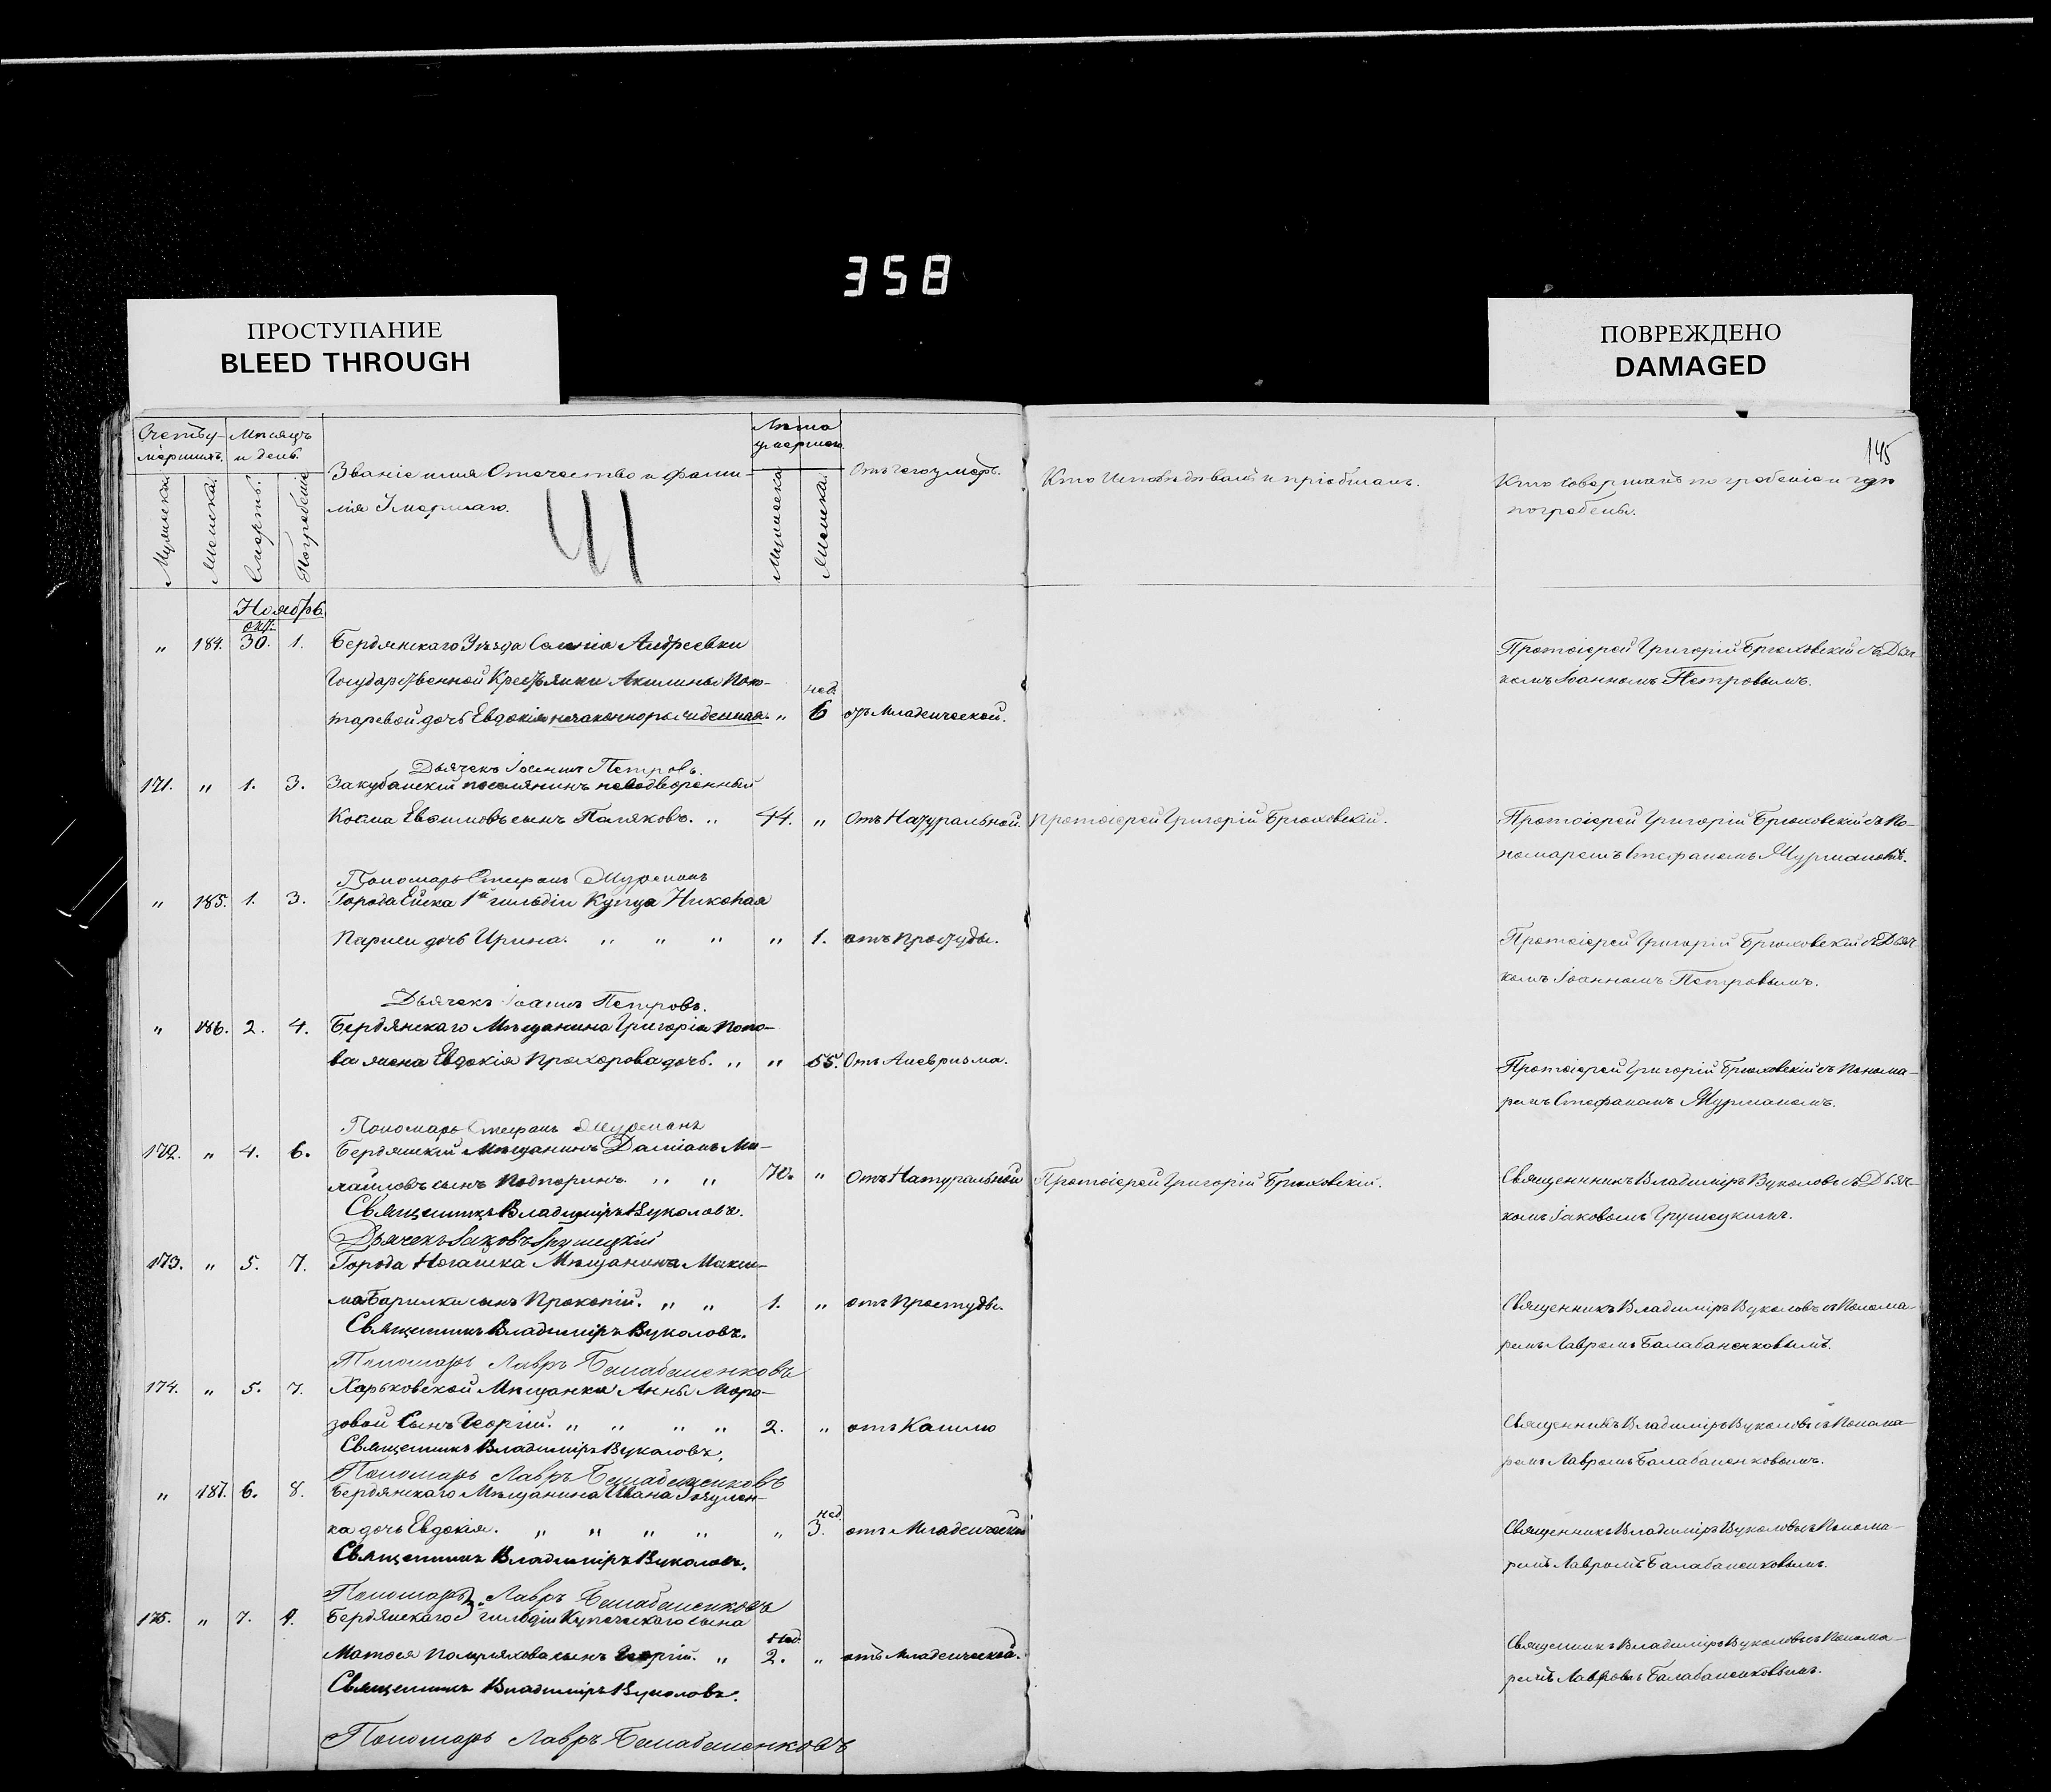 358
ПРОСТУПАНИЕ
BLEED THROUGH
ПОВРЕЖДЕНО
DAMAGED
145
Счетъ у-
мершихъ.
Мѣсяцъ
и день.
Мужеска.
Женска.
Смерть.
Погребенія
Званіе имя Отечество и фами-
лія Умершаго.
41
Лѣта
умершаго.
Мужеска
Женска.
Отъ чего умеръ.
Кто Исповѣдывалъ и пріобщалъ.
Кто совершалъ погребеніе и гдѣ
погребены.
Ноябрь
окт.
" 184. 30. 1. Бердянскаго Уѣзда Селенія Андреевки
Государственной Крестьянки Акилины
таревой дочь Евдокія незаконнорожденная. " нед. 6 отъ Младенческой.
Протоіерей Григорій Брюховскій съ Дьяч-
комъ Іоанномъ Петровымъ.
Дьячекъ Іоаннъ Петровъ.
171. " 1. 3. Закубанскій поселянинъ неводворенный
Косма Евфимовъ сынъ Поляковъ. " 44. " Отъ Натуральной. Протоіерей Григорій Брюховскій.
Протоіерей Григорій Брюховскій съ По-
номаремъ Стефаномъ Мурманомъ.
Пономарь Стефанъ Мурманъ
" 185. 1. 3. Города Ейска 1й гильдіи Купца Николая
дочь Ирина. " " " " 1. отъ Простуды.
Протоіерей Григорій Брюховскій съ Дьяч-
комъ Іоанномъ Петровымъ.
Дьячекъ Іоаннъ Петровъ.
" 186. 2. 4. Бердянскаго Мѣщанина Григорія Попо-
ва жена Евдокія Прохорова дочь. " " 55. Отъ Аневризма.
Протоіерей Григорій Брюховскій съ Понома-
ремъ Стефаномъ Мурманомъ.
Пономарь Стефанъ Мурманъ
172. " 4. 6. Бердянскій Мѣщанинъ Даміанъ Ми-
хайловъ сынъ Подпоринъ. " " 70. " Отъ Натуральной Протоіерей Григорій Брюховскій.
Священникъ Владиміръ Вуколовъ съ Дьяч-
комъ Іаковомъ Грушецкимъ.
Священникъ Владиміръ Вуколовъ.
Дьячекъ Іаковъ Грушецкій
173. " 5. 7. Города Ногайска Мѣщанина Макси-
ма Барилки сынъ Прокопій. " " 1. " отъ Простуды.
Священникъ Владиміръ Вуколовъ съ Понома-
ремъ Лавромъ Балабаненковымъ.
Священникъ Владиміръ Вуколовъ.
Пономарь Лавръ Балабаненковъ
174. " 5. 7. Харьковской Мѣщанки Анны Моро-
зовой Сынъ Георгій. " " " " 2. " отъ Кашлю
Священникъ Владиміръ Вуколовъ съ Понома-
ремъ Лавромъ Балабаненковымъ.
Священникъ Владиміръ Вуколовъ.
Пономарь Лавръ Балабаненковъ
" 187. 6. 8. Бердянскаго Мѣщанина Ивана
ка дочь Евдокія. " " " " " нед. 3. отъ Младенческой
Священникъ Владиміръ Вуколовъ съ Понома-
ремъ Лавромъ Балабаненковымъ.
Священникъ Владиміръ Вуколовъ.
Пономарь Лавръ Балабаненковъ
175. " 7. 9. Бердянскаго 2й гильдіи Купеческаго сына
сынъ Георгій. " Нед. 2. " отъ Младенческой.
Священникъ Владиміръ Вуколовъ съ Понома-
ремъ Лавромъ Балабаненковымъ.
Священникъ Владиміръ Вуколовъ.
Пономарь Лавръ Балабаненковъ